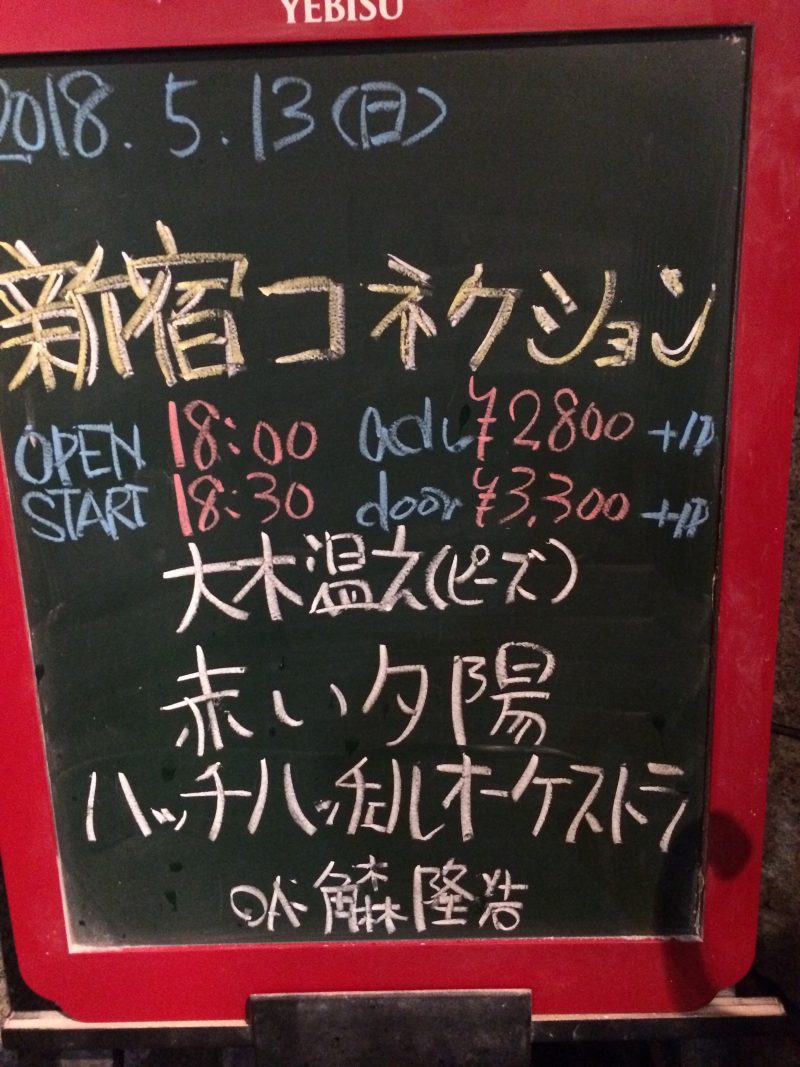 YEBISU
2018.5.13(日)
新宿コネクション
OPEN 18:00 adv ¥2800 +1D
START 18:30 door ¥3,300 +1D
大木温之(ピーズ)
赤い夕陽
ハッチハッチェルオーケストラ
OA:角森隆浩